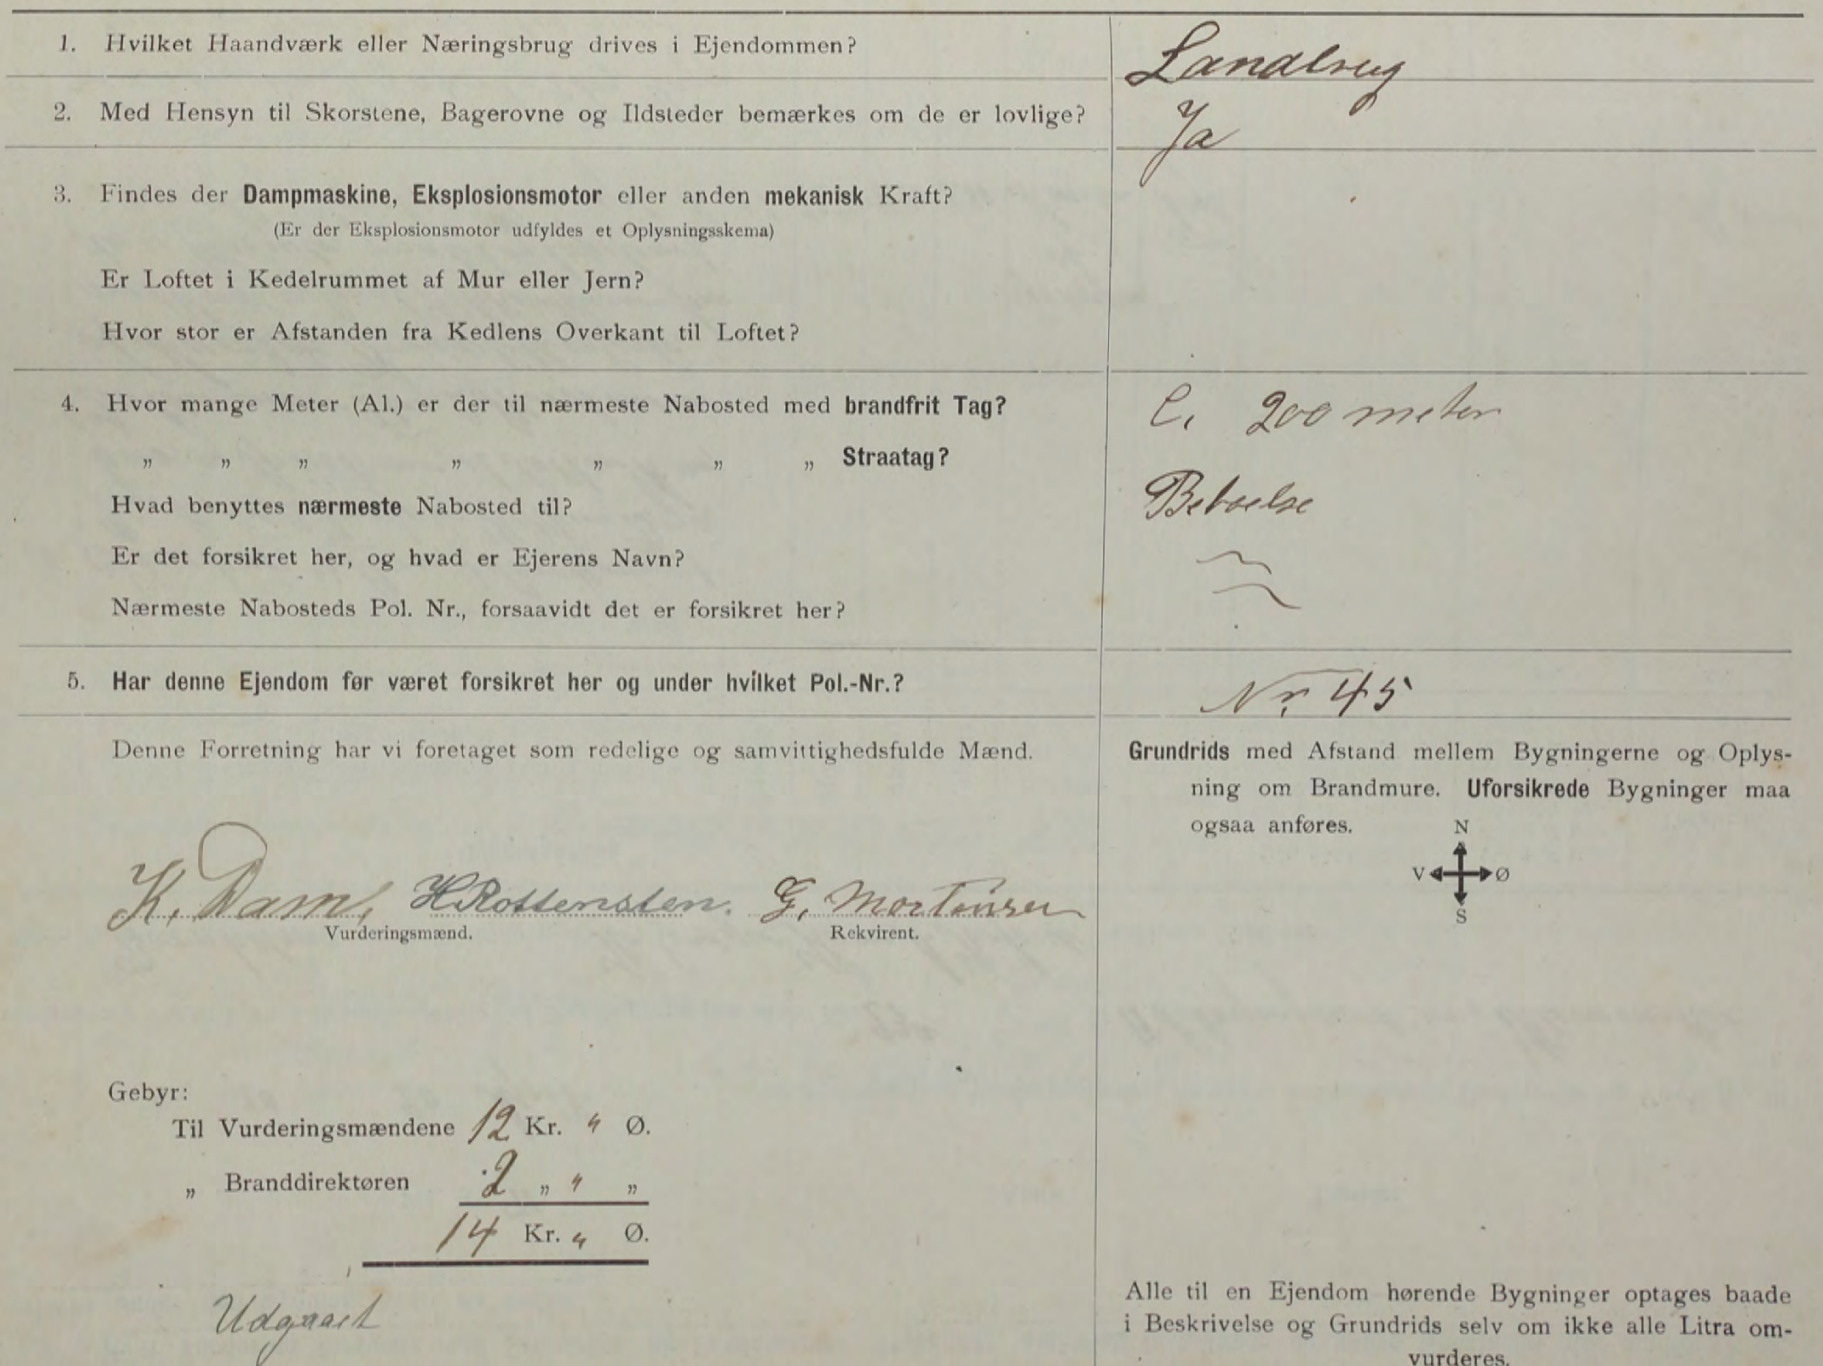 1. Hvilket Haandværk eller Næringsbrug drives i Ejendommen? Landbrug
2. Med Hensyn til Skorstene, Bagerovne og Ildsteder bemærkes om de er lovlige? Ja
3. Findes der Dampmaskine, Eksplosionsmotor eller anden mekanisk Kraft?
(Er der Eksplosionsmotor udfyldes et Oplysningsskema)
Er Loftet i Kedelrummet af Mur eller Jern?
Hvor stor er Afstanden fra Kedlens Overkant til Loftet?
4. Hvor mange Meter (Al.) er der til nærmeste Nabosted med brandfrit Tag? C. 200 meter
„ „ „ „ „ „ „ Straatag?
Hvad benyttes nærmeste Nabosted til? Beboelse
Er det forsikret her, og hvad er Ejerens Navn?
Nærmeste Nabosteds Pol. Nr., forsaavidt det er forsikret her?
5. Har denne Ejendom før været forsikret her og under hvilket Pol.-Nr.? Nr. 45
Denne Forretning har vi foretaget som redelige og samvittighedsfulde Mænd.
K. Dam, H. Rottensten. G. Mortensen
Vurderingsmænd. Rekvirent.
Gebyr:
Til Vurderingsmændene 12 Kr. " Ø.
„ Branddirektøren 2 „ " „
14 Kr. " Ø.
Udgaaet
Grundrids med Afstand mellem Bygningerne og Oplys-
ning om Brandmure. Uforsikrede Bygninger maa
ogsaa anføres.
N
V Ø
S
Alle til en Ejendom hørende Bygninger optages baade
i Beskrivelse og Grundrids selv om ikke alle Litra om-
vurderes.